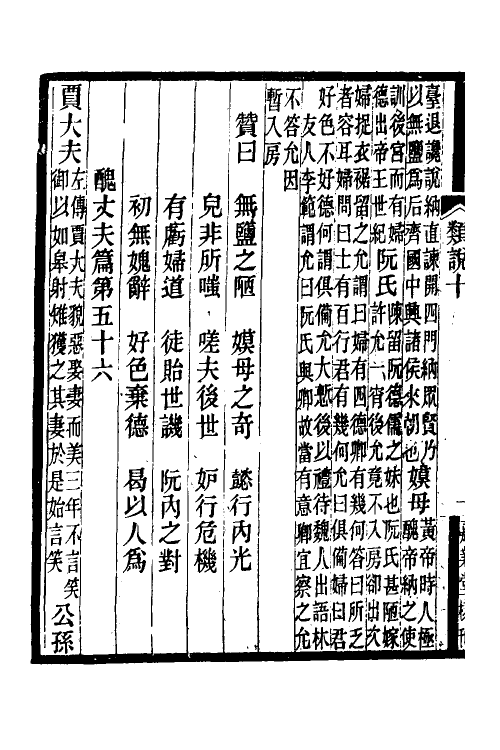 類說十
臺退讒說納直諫開四門納眾賢乃
以無鹽爲后齊國中興諸侯來朝也
嫫母
黃帝時人極
醜帝納之使
訓後宮而有婦
德出帝王世紀
阮氏
陳留阮德儒之妹也阮氏甚陋嫁
許允一宵後允竟不入房卻出次
婦捉衣裾留之允謂曰婦有四德卿有幾何答曰所乏
者容耳婦問曰士有百行君有幾何允曰俱備婦曰君
好色不好德何謂俱備允大慙後以禮待魏人出語林
友人李範謂允曰阮氏與卿故當有意卿宜察之允
不答允因
暫入房
贊曰 無鹽之陋 嫫母之奇 懿行內光
兒非所嗤 嗟夫後世 妒行危機
有虧婦道 徒貽世譏 阮內之對
初無媿辭 好色棄德 曷以人爲
醜丈夫篇第五十六
賈大夫
左傳賈大夫貌惡娶妻而美三年不言笑
御以如臯射雉獲之其妻於是始言笑
公孫